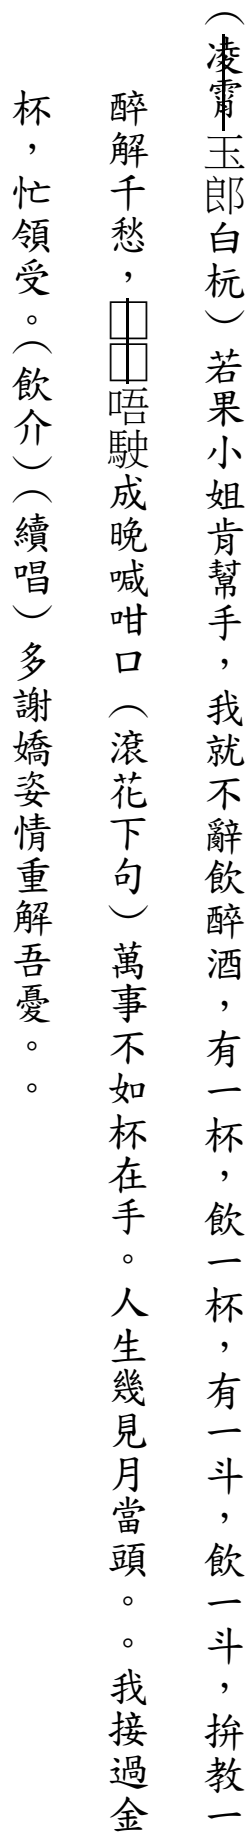 （凌霄玉郎白杬）若果小姐肯幫手，我就不辭飲醉酒，有一杯，飲一杯，有一斗，飲一斗，拚教一
醉解千愁，□□唔駛成晚喊咁口（滾花下句）萬事不如杯在手。人生幾見月當頭。。我接過金
杯，忙領受。（飲介）（續唱）多謝嬌姿情重解吾憂。。